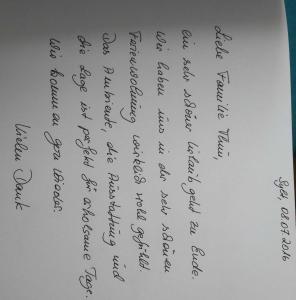 Sylt, 08.07.2016
Liebe Familie Thun,
ein sehr schöner Urlaub geht zu Ende.
Wir haben uns in der sehr schönen
Ferienwohnung wirklich wohl gefühlt.
Das Ambiente, die Ausstattung und
die Lage ist perfekt für erholsame Tage.
Wir kommen gern wieder.
Vielen Dank